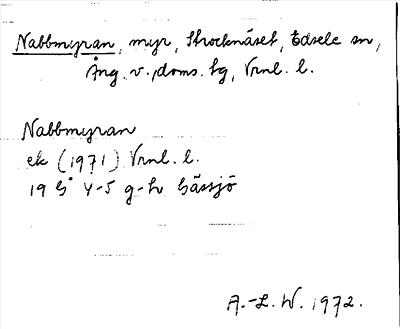 Nabbmyran, myr, Stocknäset, Edsele sn,
Ång. v., doms. tg, Vrnl. l.
Nabbmyran
ek (1971) Vrnl. l.
19 G 4-5 g-h Gåssjö
A.-L. W. 1972.